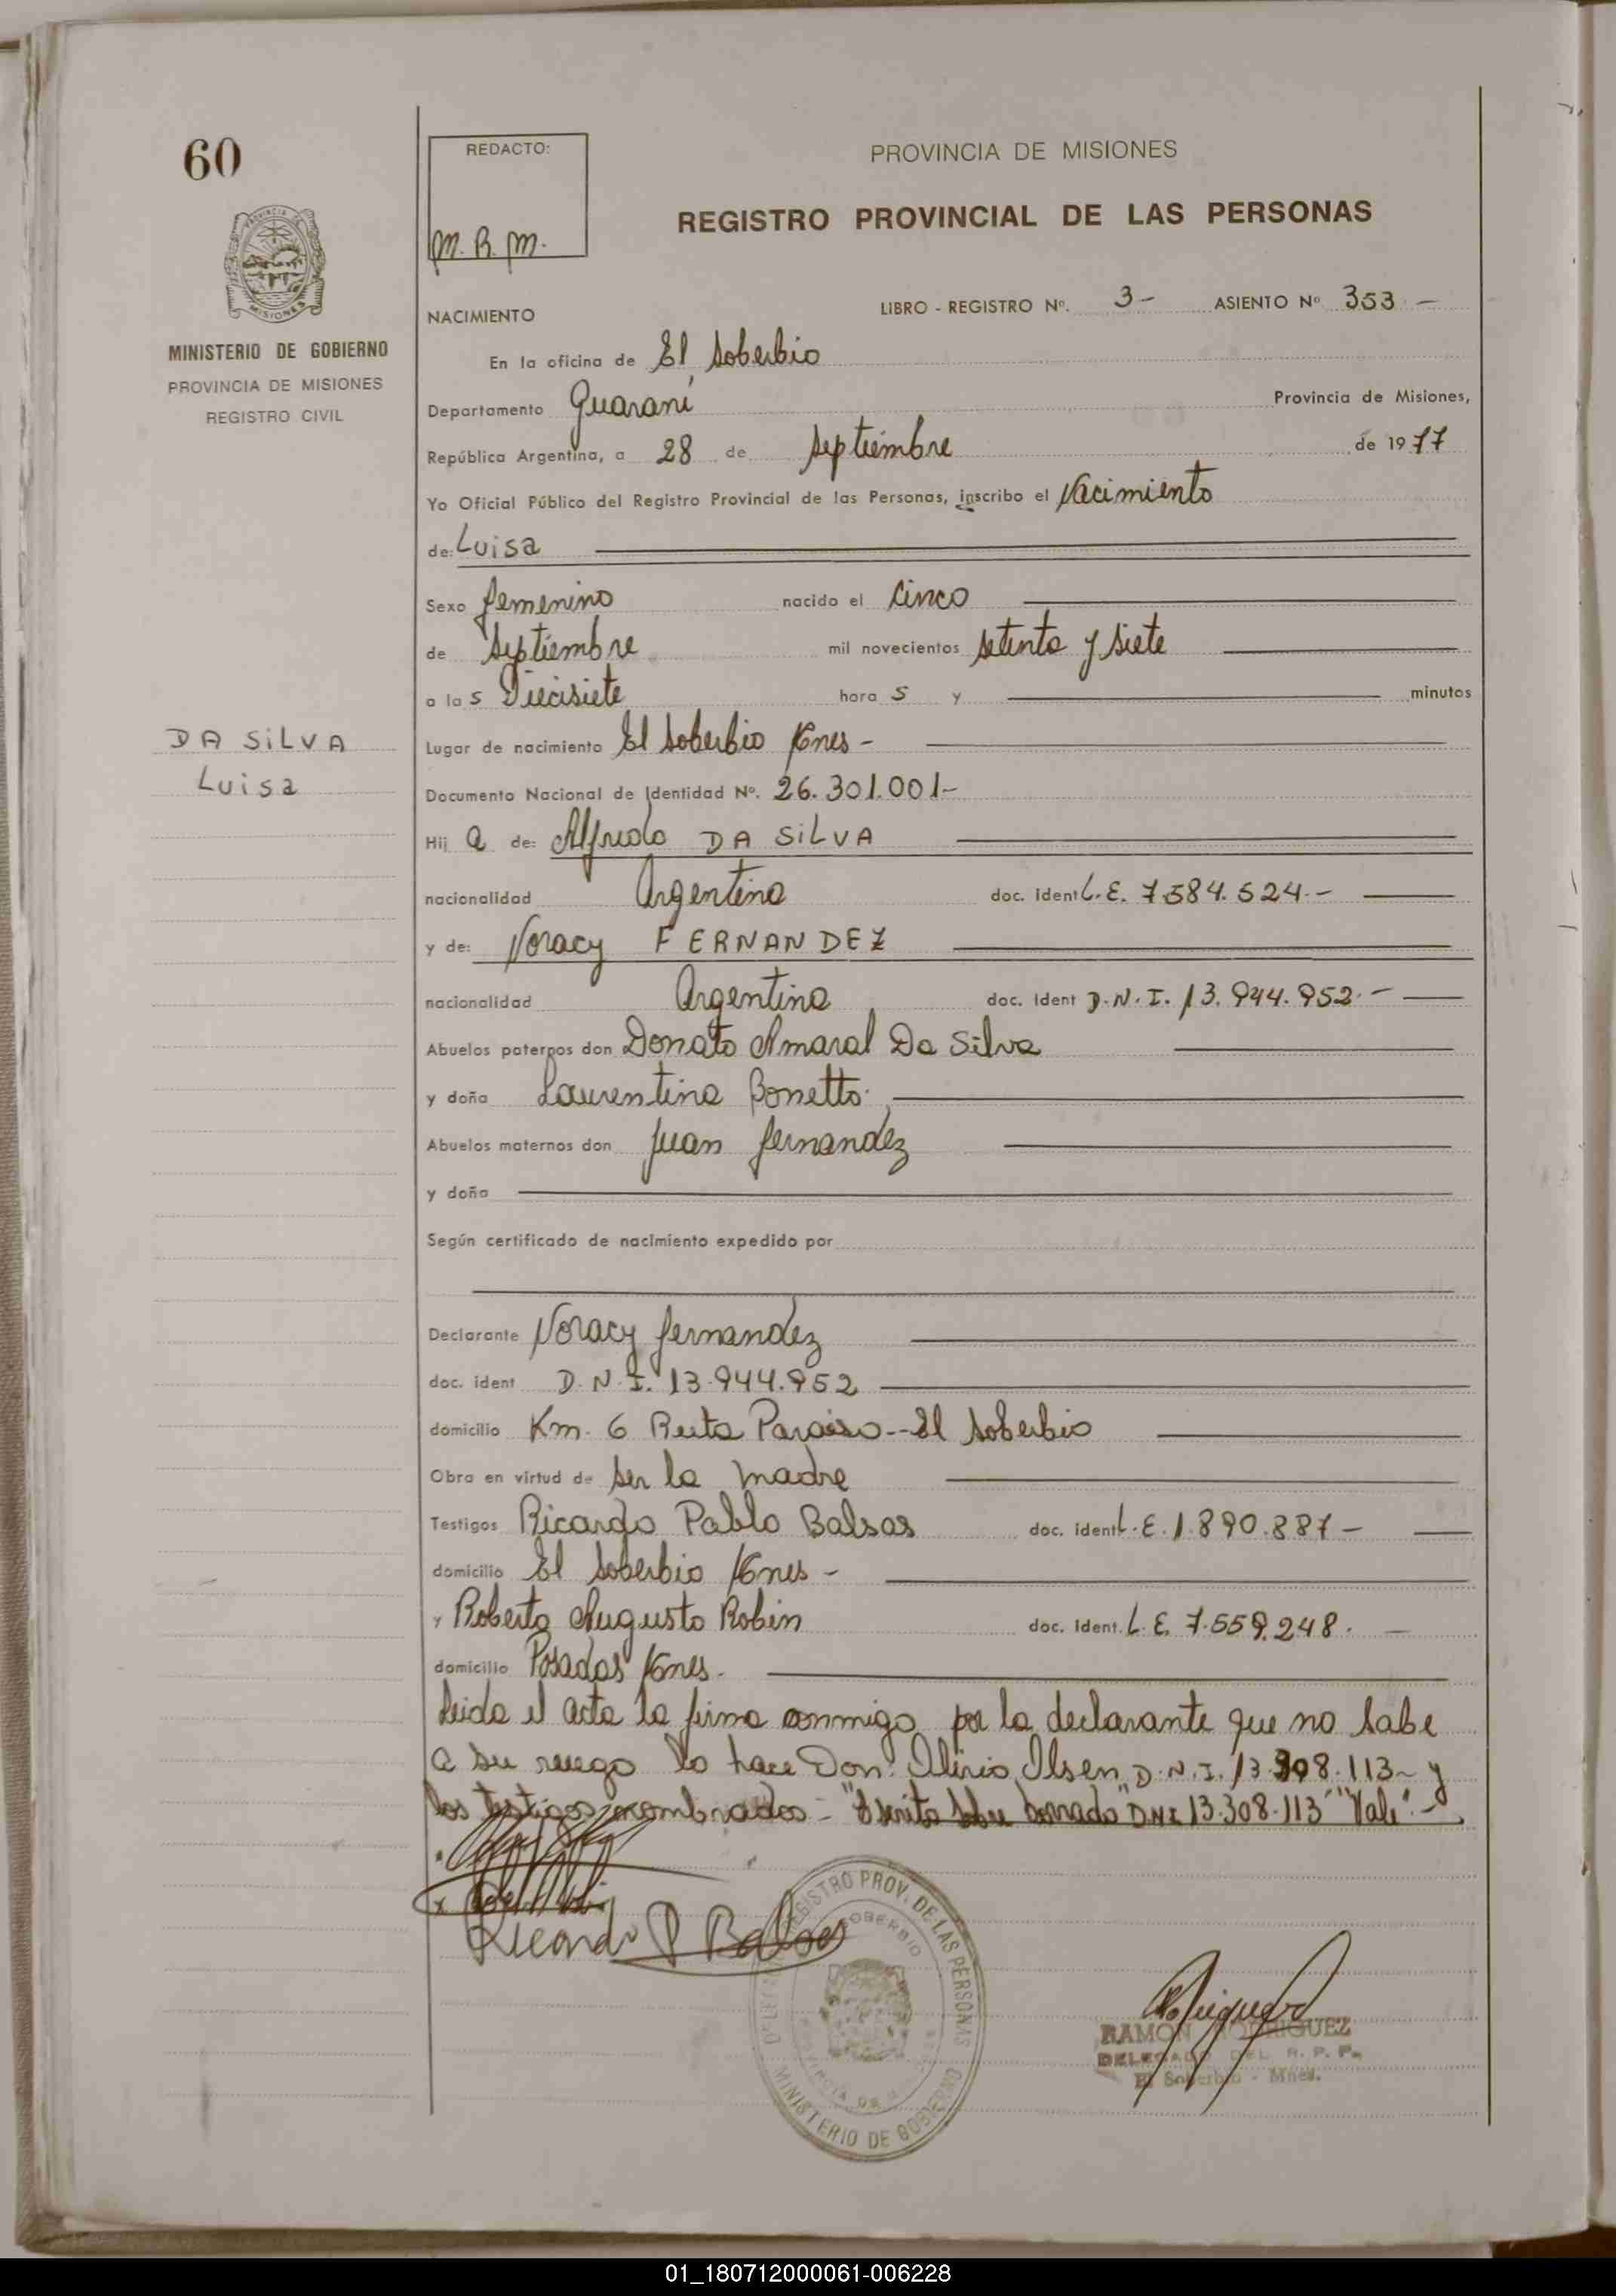 60
REDACTO:
M. R. M.
PROVINCIA DE MISIONES
REGISTRO PROVINCIAL DE LAS PERSONAS
MINISTERIO DE GOBIERNO
PROVINCIA DE MISIONES
REGISTRO CIVIL
NACIMIENTO LIBRO - REGISTRO Nº. 3- ASIENTO Nº 353 -
En la oficina de El Soberbio
Departamento Guaraní Provincia de Misiones,
República Argentina, a 28 de Septiembre de 1977
Yo Oficial Público del Registro Provincial de las Personas, inscribo el Nacimiento
de: Luisa
Sexo femenino nacido el cinco
de Septiembre mil novecientos setenta y siete
a las Diecisiete hora s y minutos
DA SILVA
Luisa
Lugar de nacimiento El Soberbio Mnes -
Documento Nacional de Identidad Nº. 26.301.001-
Hij a de: Alfredo DA SILVA
nacionalidad Argentina doc. ident L.E. 7.584.524.-
y de: Noracy FERNANDEZ
nacionalidad Argentina doc. ident D.N.I. 13.944.952.-
Abuelos paternos don Donato Amaral Da Silva
y doña Laurentina Bonetto.
Abuelos maternos don Juan fernandez
y doña
Según certificado de nacimiento expedido por
Declarante Noracy fernandez
doc. ident D.N.I. 13.944.952
domicilio Km. 6 Ruta Paraiso--El Soberbio
Obra en virtud de ser la madre
Testigos Ricardo Pablo Balsas doc. ident L.E. 1.890.887 -
domicilio El Soberbio Mnes -
y Roberto Augusto Robin doc. ident. L.E. 7.559.248. -
domicilio Posadas Mnes.
Leida el acta la firma conmigo por la declarante que no sabe
a su ruego lo hace Don: Olirio Olsen D.N.I. 13.308.113- y
los testigos nombrados - "Escrito sobre borrado" DNI 13.308.113 "Vale".-
Ricardo P Balsas
REGISTRO PROV. DE LAS PERSONAS
SOBERBIO
MINISTERIO DE GOBIERNO
RAMON RODRIGUEZ
DELEGADO DEL R. P. P.
El Soberbio - Mnes.
01_180712000061-006228